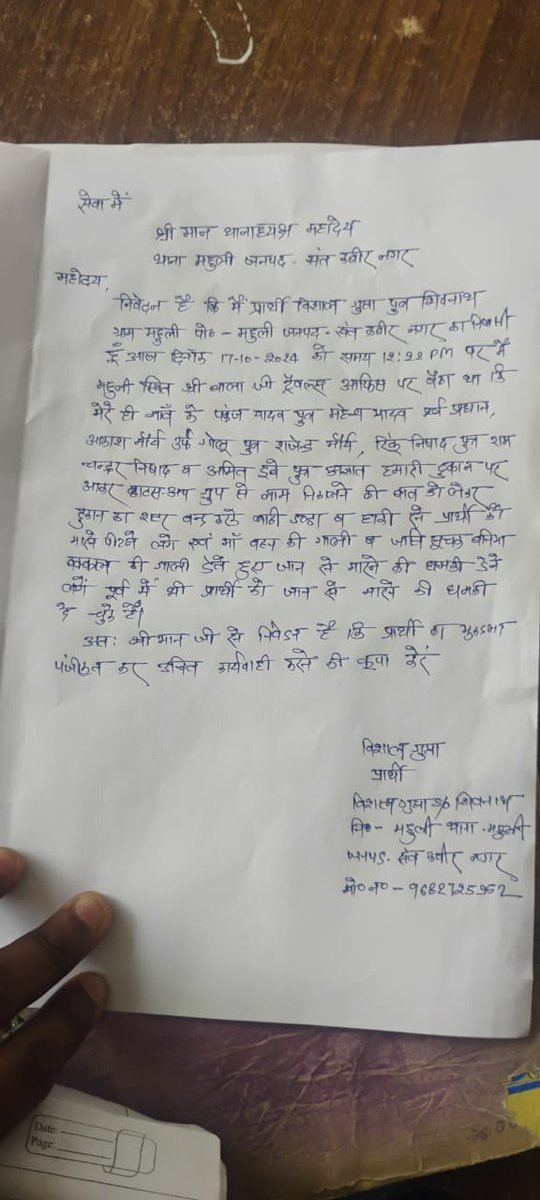 सेवा में
श्री मान थानाध्यक्ष महोदय
थाना महुली जनपद - संत कबीर नगर
महोदय,
निवेदन है कि मैं प्रार्थी विशाल गुप्ता पुत्र शिवनाथ
ग्राम महुली पो० - महुली जनपद - संत कबीर नगर का निवासी
हूँ आज दिनांक 17-10-2024 को समय 12:22 PM पर मैं
महुली स्थित श्री बाला जी ट्रैवल्स आफिस पर बैठा था कि
मेरे ही गाँव के पंकज यादव पुत्र महेश यादव पूर्व प्रधान,
आकाश मौर्य उर्फ गोलू पुत्र राजेन्द्र मौर्य, रिंकू निषाद पुत्र राम
चन्द्रर निषाद व अमित दूबे पुत्र अज्ञात हमारी दुकान पर
आकर व्हाटस-अप ग्रुप से नाम निकालने की बात को लेकर
दुकान का शटर बन्द करके लाठी डण्डा व से प्रार्थी को
मारने पीटने लगे एवं माँ बहन की गाली व जाति सूचक बनिया
बक्काल की गाली देते हुए जान से मारने की धमकी देने
लगें पूर्व में भी प्रार्थी को जान से मारने की धमकी
दे चुके हैं।
अतः श्रीमान जी से निवेदन है कि प्रार्थी का मुकदमा
पंजीकृत कर उचित कार्यवाही करने की कृपा करें
विशाल गुप्ता
प्रार्थी
विशाल गुप्ता S/o शिवनाथ
नि०- महुली थाना - महुली
जनपद - संत कबीर नगर
मो० न० - 9682725952
Date:
Page: